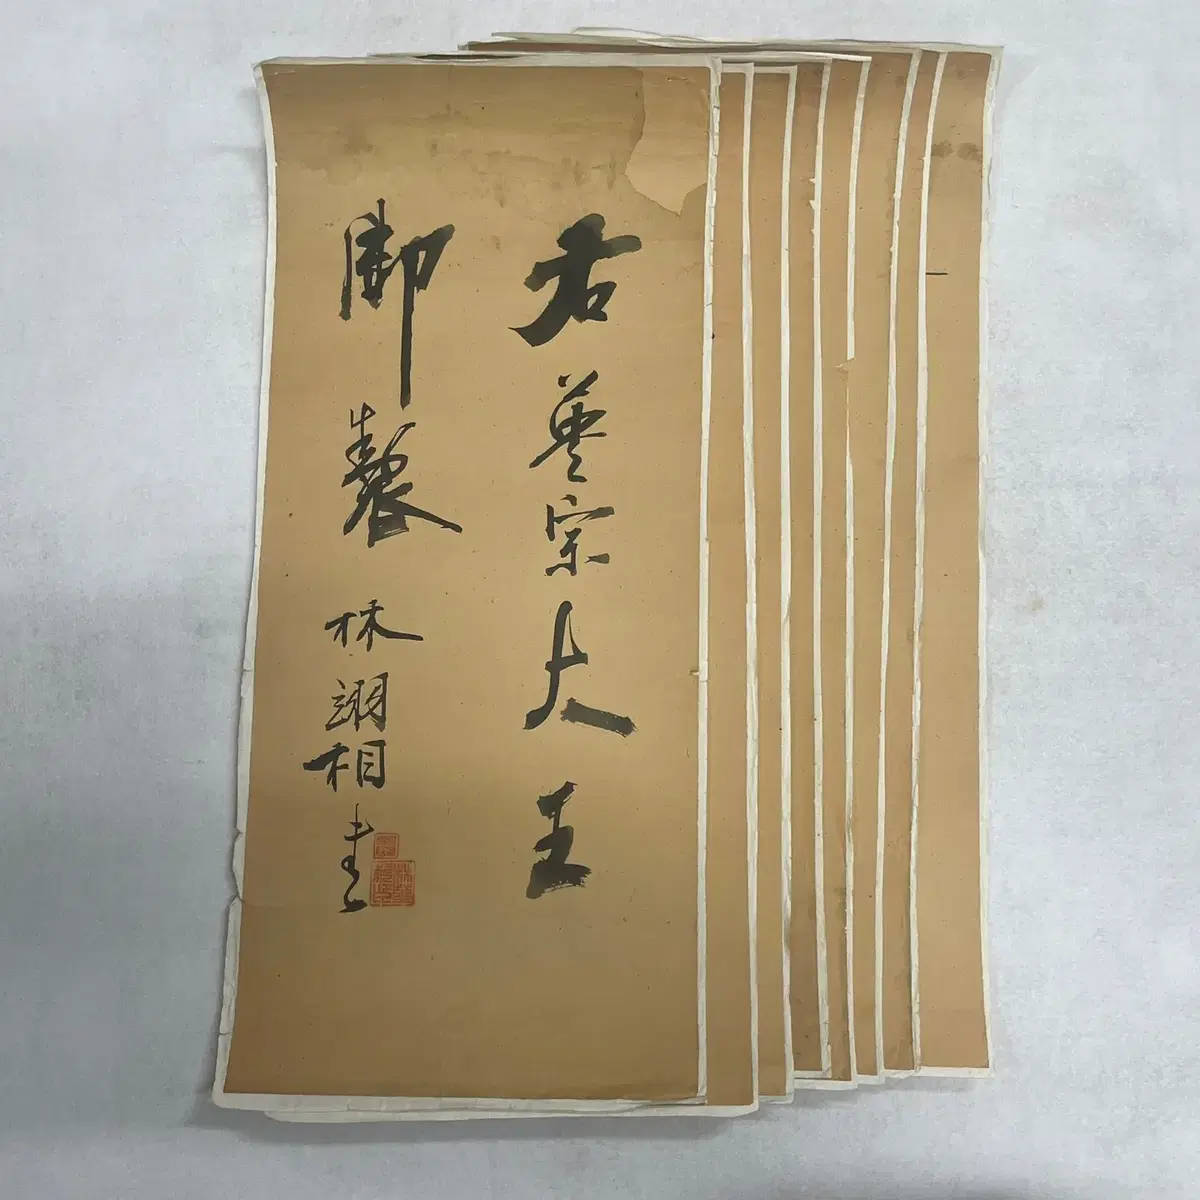 右英宗大王
御製 林翊相書